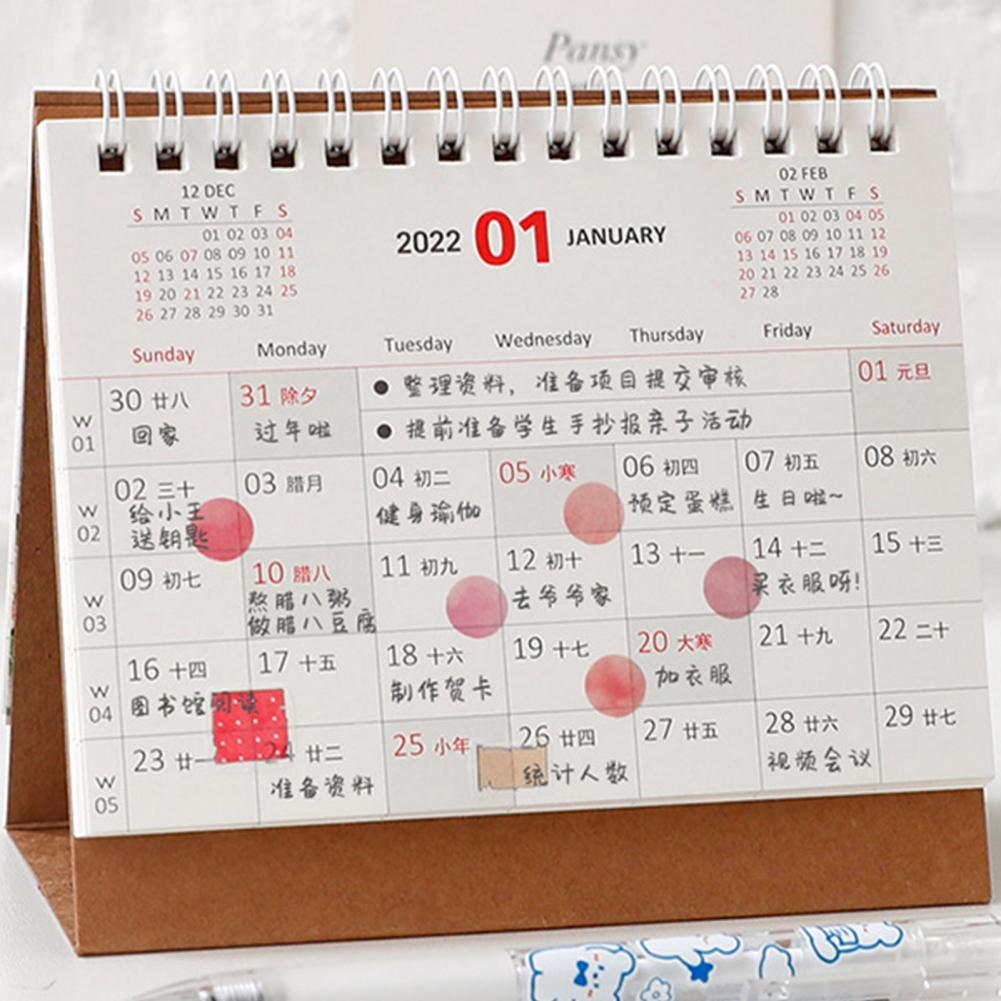 Pansy
12 DEC
S M T W T F S
01 02 03 04
05 06 07 08 09 10 11
12 13 14 15 16 17 18
19 20 21 22 23 24 25
26 27 28 29 30 31
2022 01 JANUARY
02 FEB
S M T W T F S
01 02 03 04 05
06 07 08 09 10 11 12
13 14 15 16 17 18 19
20 21 22 23 24 25 26
27 28
Sunday Monday Tuesday Wednesday Thursday Friday Saturday
W 01
30 廿八
回家
31 除夕
过年啦
● 整理资料，准备项目提交审核
● 提前准备学生手抄报亲子活动
01 元旦
W 02
02 三十
给小王
送钥匙
03 腊月
04 初二
健身瑜伽
05 小寒
06 初四
预定蛋糕
07 初五
生日啦~
08 初六
W 03
09 初七
10 腊八
熬腊八粥
做腊八豆腐
11 初九
12 初十
去爷爷家
13 十一
14 十二
买衣服呀!
15 十三
W 04
16 十四
图书馆阅读
17 十五
18 十六
制作贺卡
19 十七
20 大寒
加衣服
21 十九
22 二十
W 05
23 廿一
24 廿二
准备资料
25 小年
26 廿四
统计人数
27 廿五
28 廿六
视频会议
29 廿七